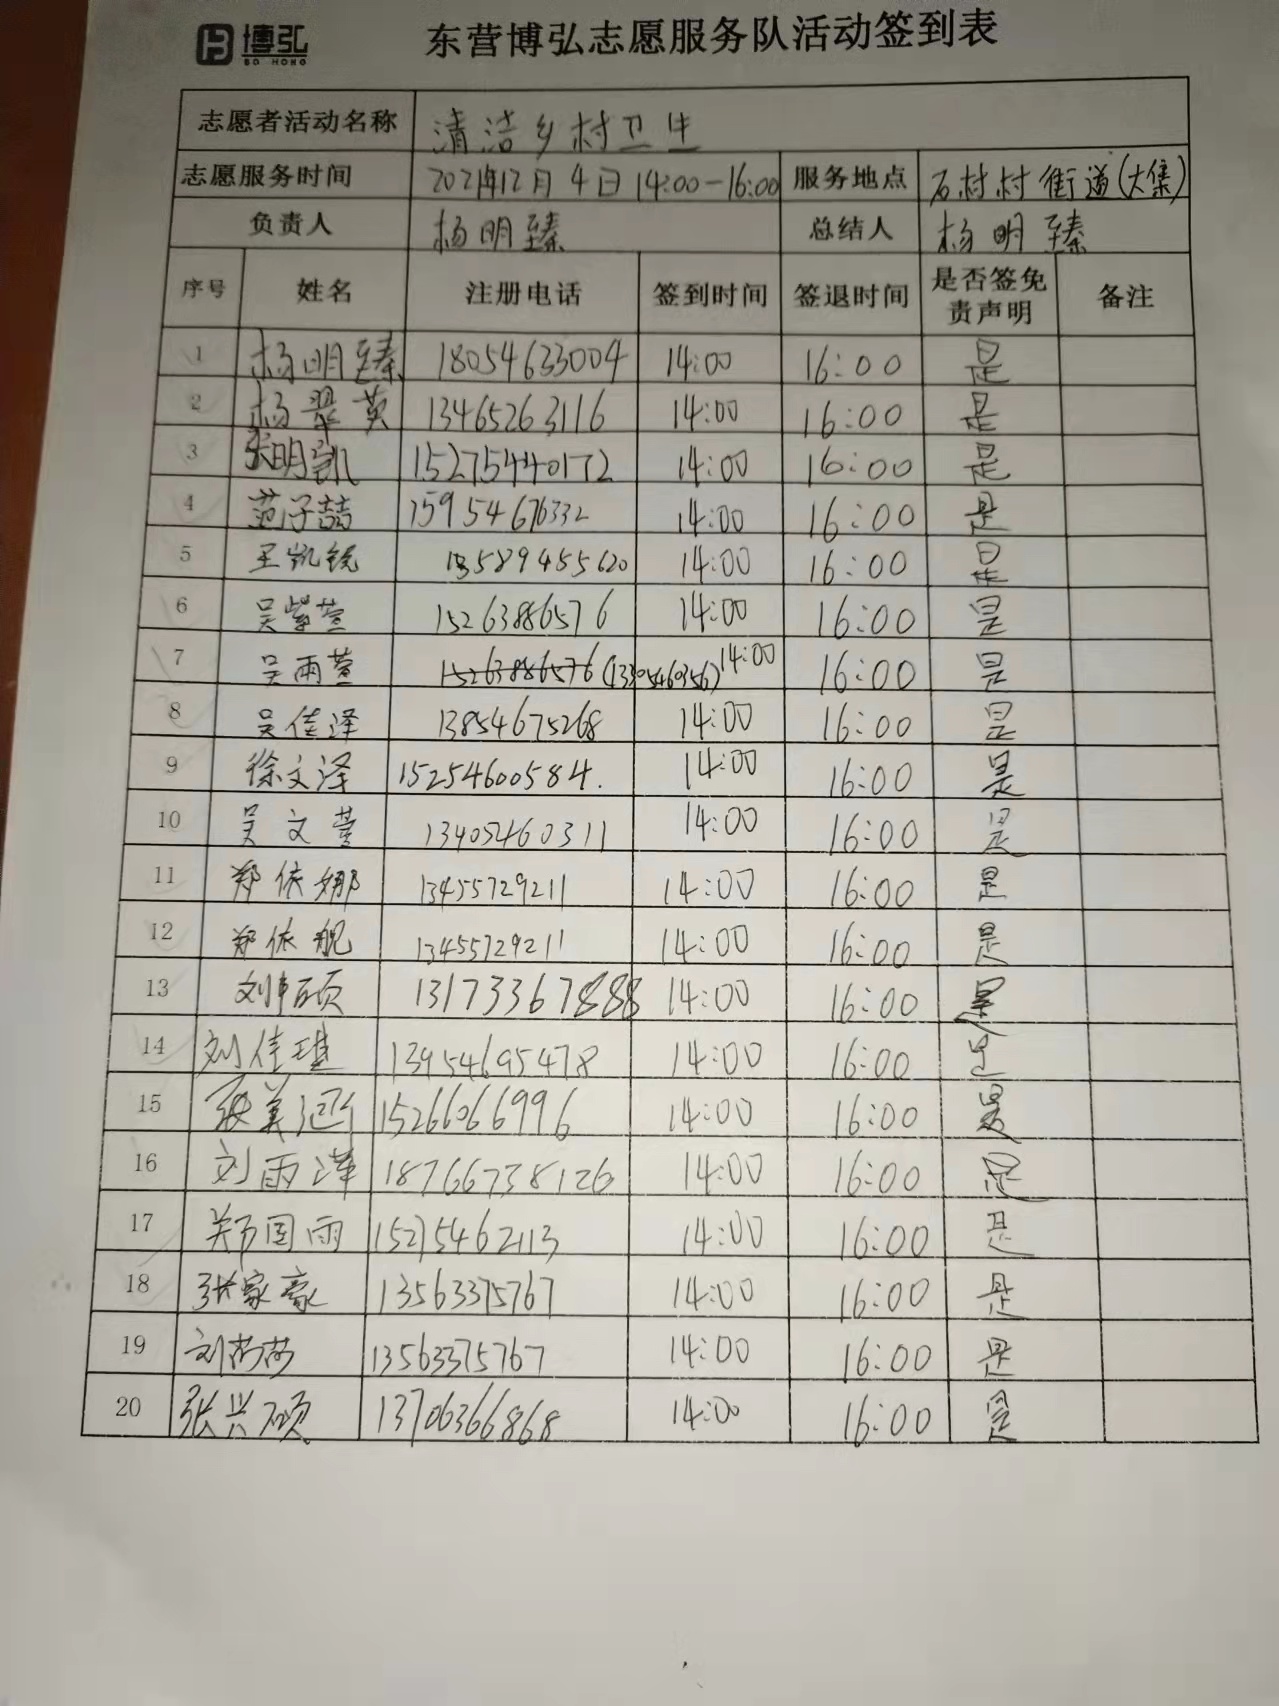 博弘
BO HONG
东营博弘志愿服务队活动签到表
志愿者活动名称 清洁乡村卫生
志愿服务时间 2021年12月4日14:00-16:00 服务地点 石村村街道(大集)
负责人 杨明臻 总结人 杨明臻
序号 姓名 注册电话 签到时间 签退时间 是否签免责声明 备注
1 杨明臻 18054633004 14:00 16:00 是
2 杨翠英 13465263116 14:00 16:00 是
3 张明凯 15275440172 14:00 16:00 是
4 范子喆 15954676332 14:00 16:00 是
5 王凯锐 13589455620 14:00 16:00 是
6 吴紫萱 15263886576 14:00 16:00 是
7 吴雨萱 15263886576 14:00 16:00 是
8 吴佳泽 13854675268 14:00 16:00 是
9 徐文泽 15254600584. 14:00 16:00 是
10 吴文萱 13405460311 14:00 16:00 是
11 郑依娜 13455729211 14:00 16:00 是
12 郑依舰 13455729211 14:00 16:00 是
13 131733367888 14:00 16:00 是
14 刘佳琪 13954695478 14:00 16:00 是
15 张美 15266066996 14:00 16:00 是
16 刘雨泽 18766738126 14:00 16:00 是
17 郑国雨 15275462113 14:00 16:00 是
18 张家豪 13563375767 14:00 16:00 是
19 刘莎莎 13563375767 14:00 16:00 是
20 张兴硕 13706366868 14:00 16:00 是